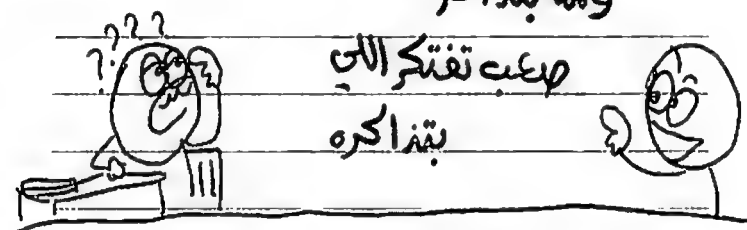 ????
صعب تفتكر اللي
بتذاكره